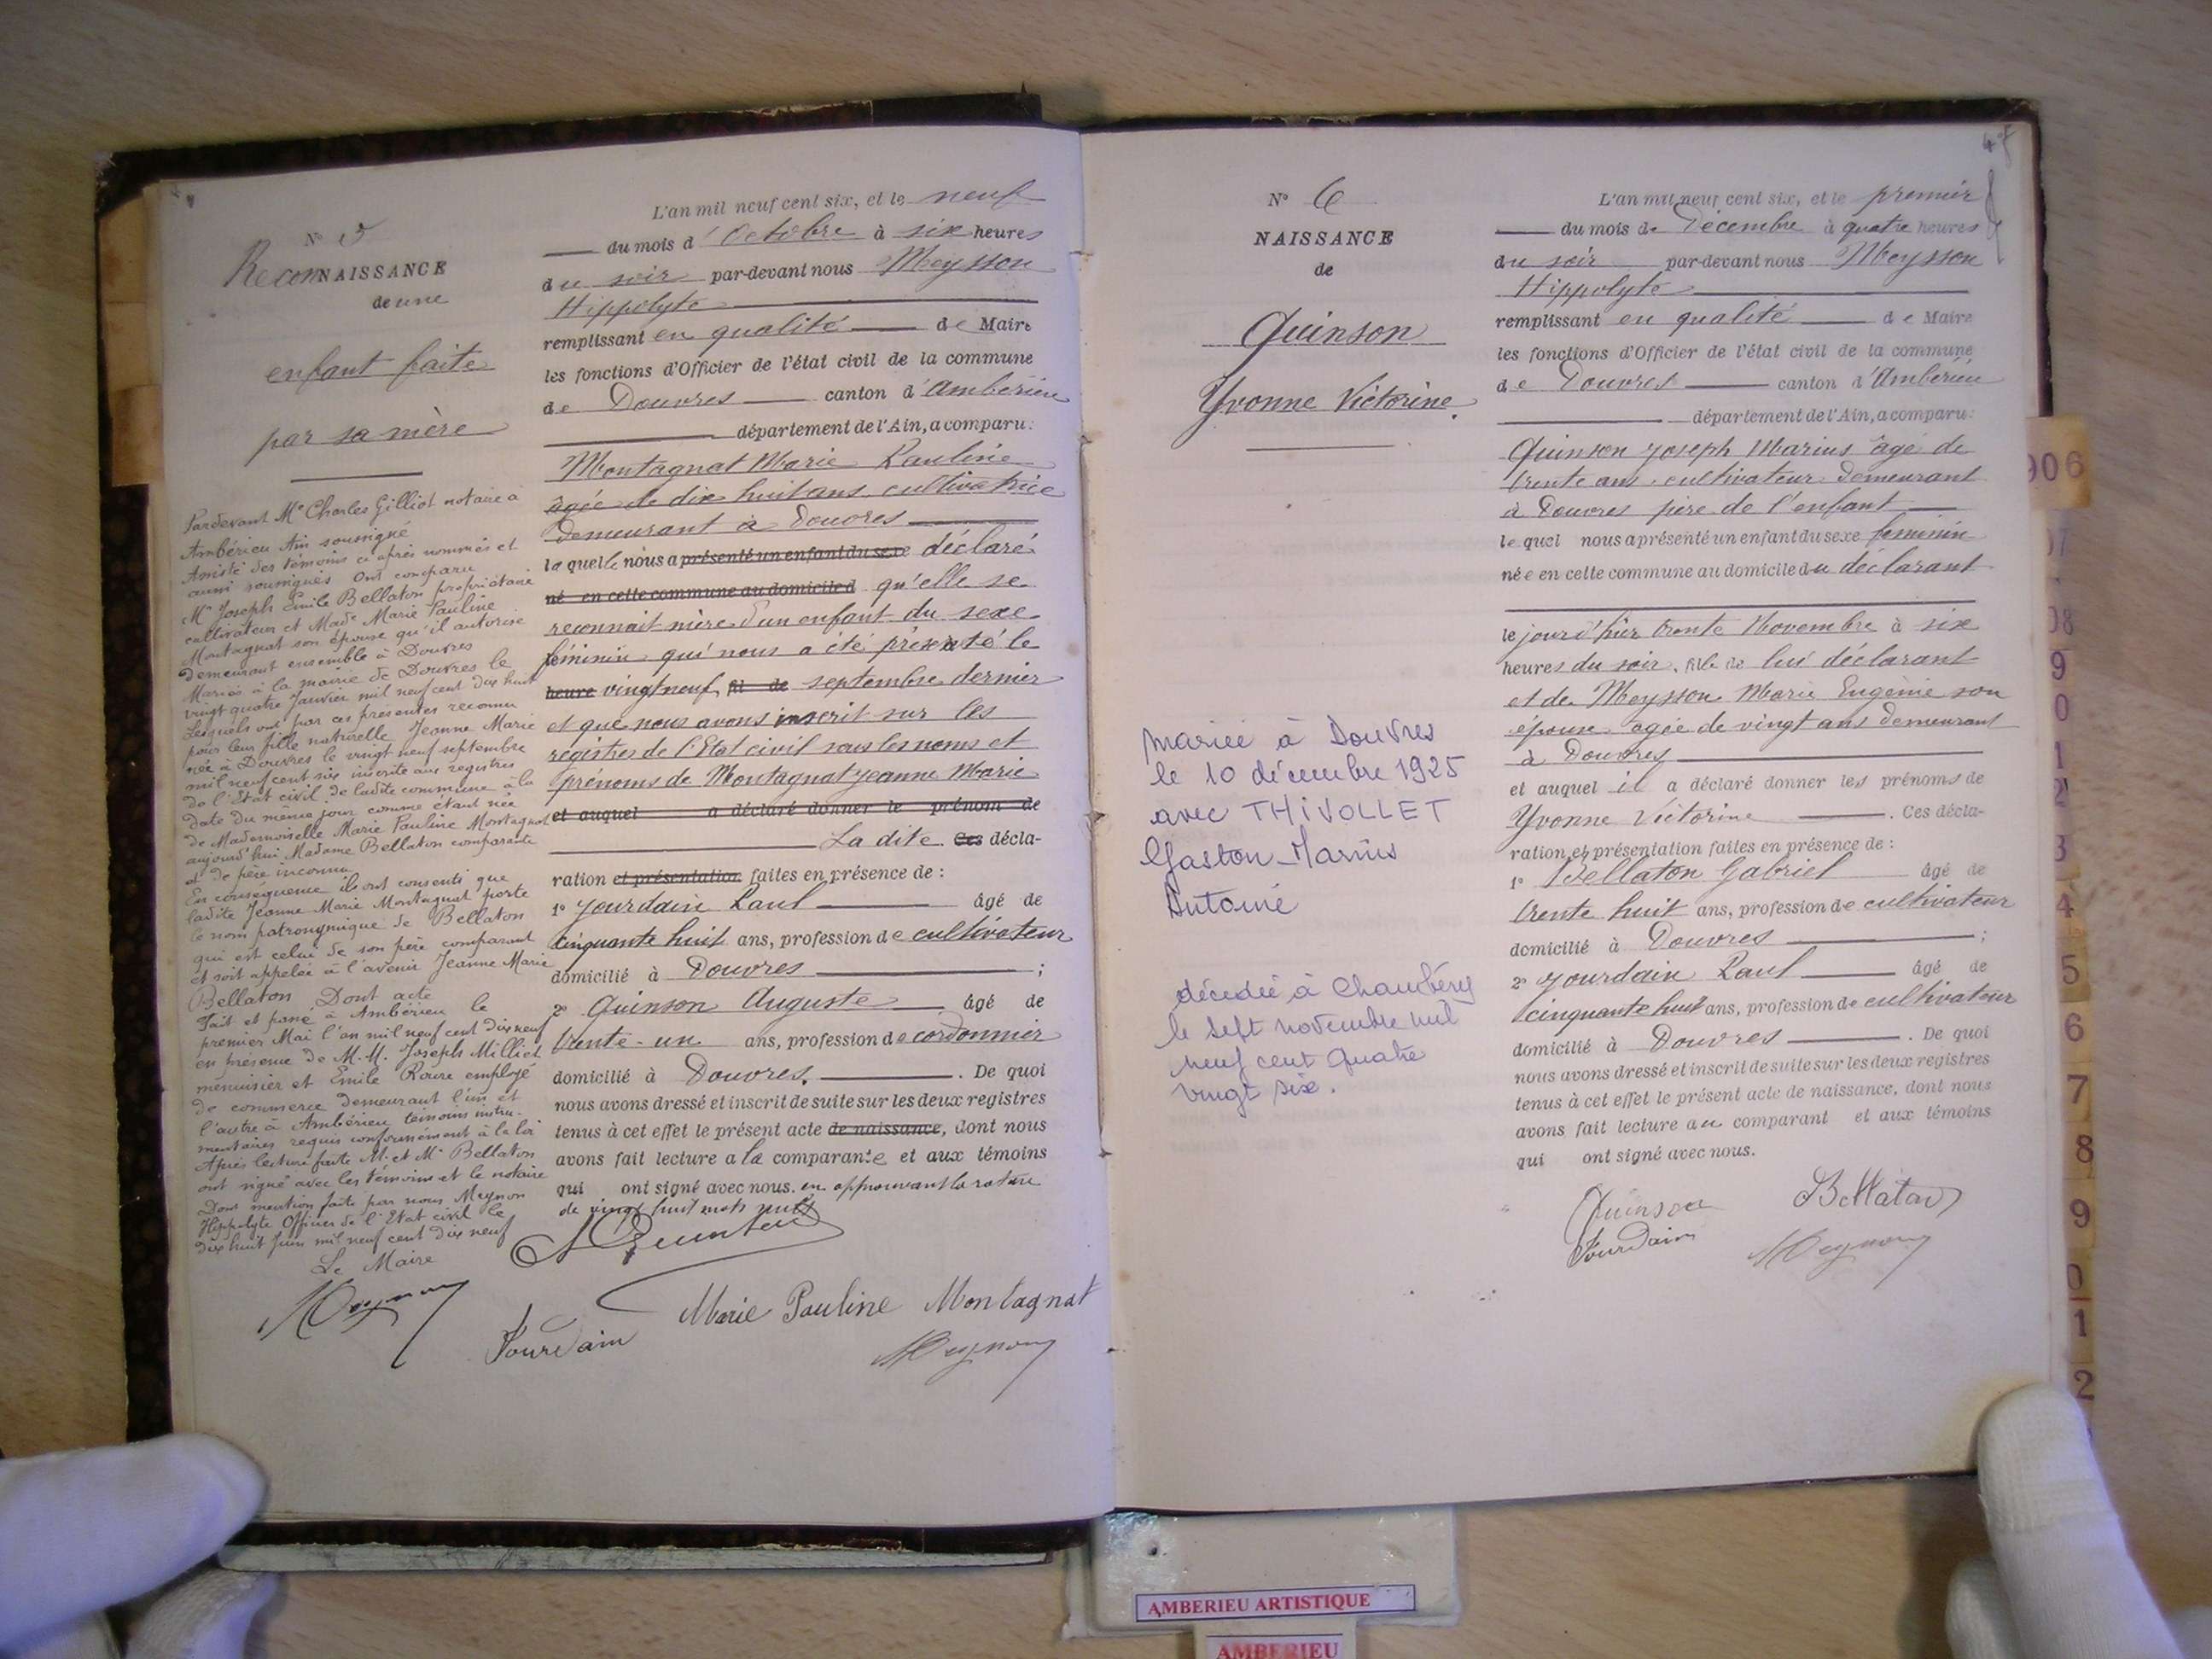 N° 5
ReconNAISSANCE
de une
enfant faite
par sa mère
Pardevant Me Charles Gilliot notaire à
Ambérieu Ain soussigné
Assisté des témoins ci après nommés et
aussi soussignés Ont comparu
Mr Joseph Emile Bellaton propriétaire
cultivateur et Made Marie Pauline
Montagnat son épouse qu'il autorise
demeurant ensemble à Douvres
Mariés à la mairie de Douvres le
vingt quatre Janvier mil neuf cent dix huit
Lesquels ont par ces présentes reconnu
pour leur fille naturelle Jeanne Marie
née à Douvres le vingt neuf septembre
mil neuf cent six inscrite aux registres
de l'Etat civil de ladite commune à la
date du même jour comme étant née
de Mademoiselle Marie Pauline Montagnat
aujourd'hui Madame Bellaton comparante
et de père inconnu
En conséquence ils ont consenti que
ladite Jeanne Marie Montagnat porte
le nom patronymique de Bellaton
qui est celui de son père comparant
et soit appelée à l'avenir Jeanne Marie
Bellaton Dont acte
Fait et passé à Ambérieu le
premier Mai l'an mil neuf cent dix neuf
en présence de M.M. Joseph Milliet
menuisier et Emile Roure employé
de commerce demeurant l'un et
l'autre à Ambérieu témoins instru-
mentaires requis conformément à la loi
Après lecture faite M. et Me Bellaton
ont signé avec les témoins et le notaire
Dont mention faite par nous Meysson
Hippolyte Officier de l'Etat civil le
dix huit Juin mil neuf cent dix neuf
Le Maire
Meysson
L'an mil neuf cent six, et le neuf
du mois d'Octobre à six heures
du soir par-devant nous Meysson
Hippolyte
remplissant en qualité de Maire
les fonctions d'Officier de l'état civil de la commune
de Douvres canton d'Ambérieu
département de l'Ain, a comparu:
Montagnat Marie Pauline
âgée de dix huit ans cultivatrice
demeurant à Douvres
laquelle nous a présenté un enfant du sexe déclaré
né en cette commune au domicile d qu'elle se
reconnait mère d'un enfant du sexe
féminin qui nous a été présenté le
heure vingt neuf fil de septembre dernier
et que nous avons inscrit sur les
registres de l'Etat civil sous les noms et
prénoms de Montagnat Jeanne Marie
et auquel a déclaré donner le prénom de
La dite Ces décla-
ration et présentation faites en présence de :
1° Jourdain Paul âgé de
cinquante huit ans, profession de cultivateur
domicilié à Douvres ;
2° Quinson Auguste âgé de
trente-un ans, profession de cordonnier
domicilié à Douvres. . De quoi
nous avons dressé et inscrit de suite sur les deux registres
tenus à cet effet le présent acte de naissance, dont nous
avons fait lecture a la comparante et aux témoins
qui ont signé avec nous. en approuvant la rature
de vingt huit mots nuls
A Quinson
Marie Pauline Montagnat
Jourdain
Meysson
48
N° 6
NAISSANCE
de
Quinson
Yvonne Victorine.
mariée à Douvres
le 10 décembre 1925
avec THIVOLLET
Gaston-Marius
Antoine
décédée à Chambéry
le sept novembre mil
neuf cent quatre
vingt six.
L'an mil neuf cent six, et le premier
du mois de Décembre à quatre heures
du soir par-devant nous Meysson
Hippolyte
remplissant en qualité de Maire
les fonctions d'Officier de l'état civil de la commune
de Douvres canton d'Ambérieu
département de l'Ain, a comparu:
Quinson Joseph Marius âgé de
trente ans cultivateur demeurant
à Douvres père de l'enfant
lequel nous a présenté un enfant du sexe féminin
née en cette commune au domicile du déclarant
le jour d'hier trente Novembre à six
heures du soir, fille de lui déclarant
et de Meysson Marie Eugénie son
épouse âgée de vingt ans demeurant
à Douvres
et auquel il a déclaré donner les prénoms de
Yvonne Victorine . Ces décla-
ration et présentation faites en présence de :
1° Bellaton Gabriel âgé de
trente huit ans, profession de cultivateur
domicilié à Douvres ;
2° Jourdain Paul âgé de
cinquante huit ans, profession de cultivateur
domicilié à Douvres . De quoi
nous avons dressé et inscrit de suite sur les deux registres
tenus à cet effet le présent acte de naissance, dont nous
avons fait lecture au comparant et aux témoins
qui ont signé avec nous.
Quinson Bellaton
Jourdain Meysson
906
07
08
9
0
1
2
3
4
5
6
7
8
9
0
1
2
AMBERIEU ARTISTIQUE
AMBERIEU